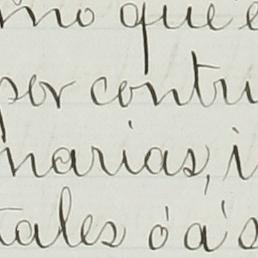 mo que e
por contri
narias, i
tales ó a s